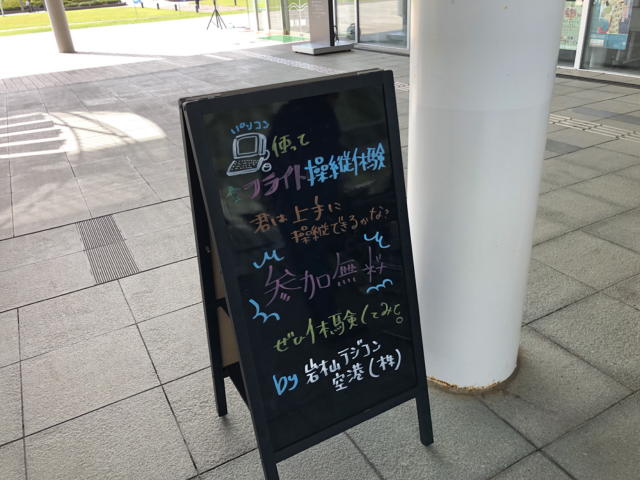 パソコン
使って
フライト操縦体験
君は上手に
操縦できるかな?
参加無料
ぜひ体験してみて。
by 岩松ラジコン
空港(株)